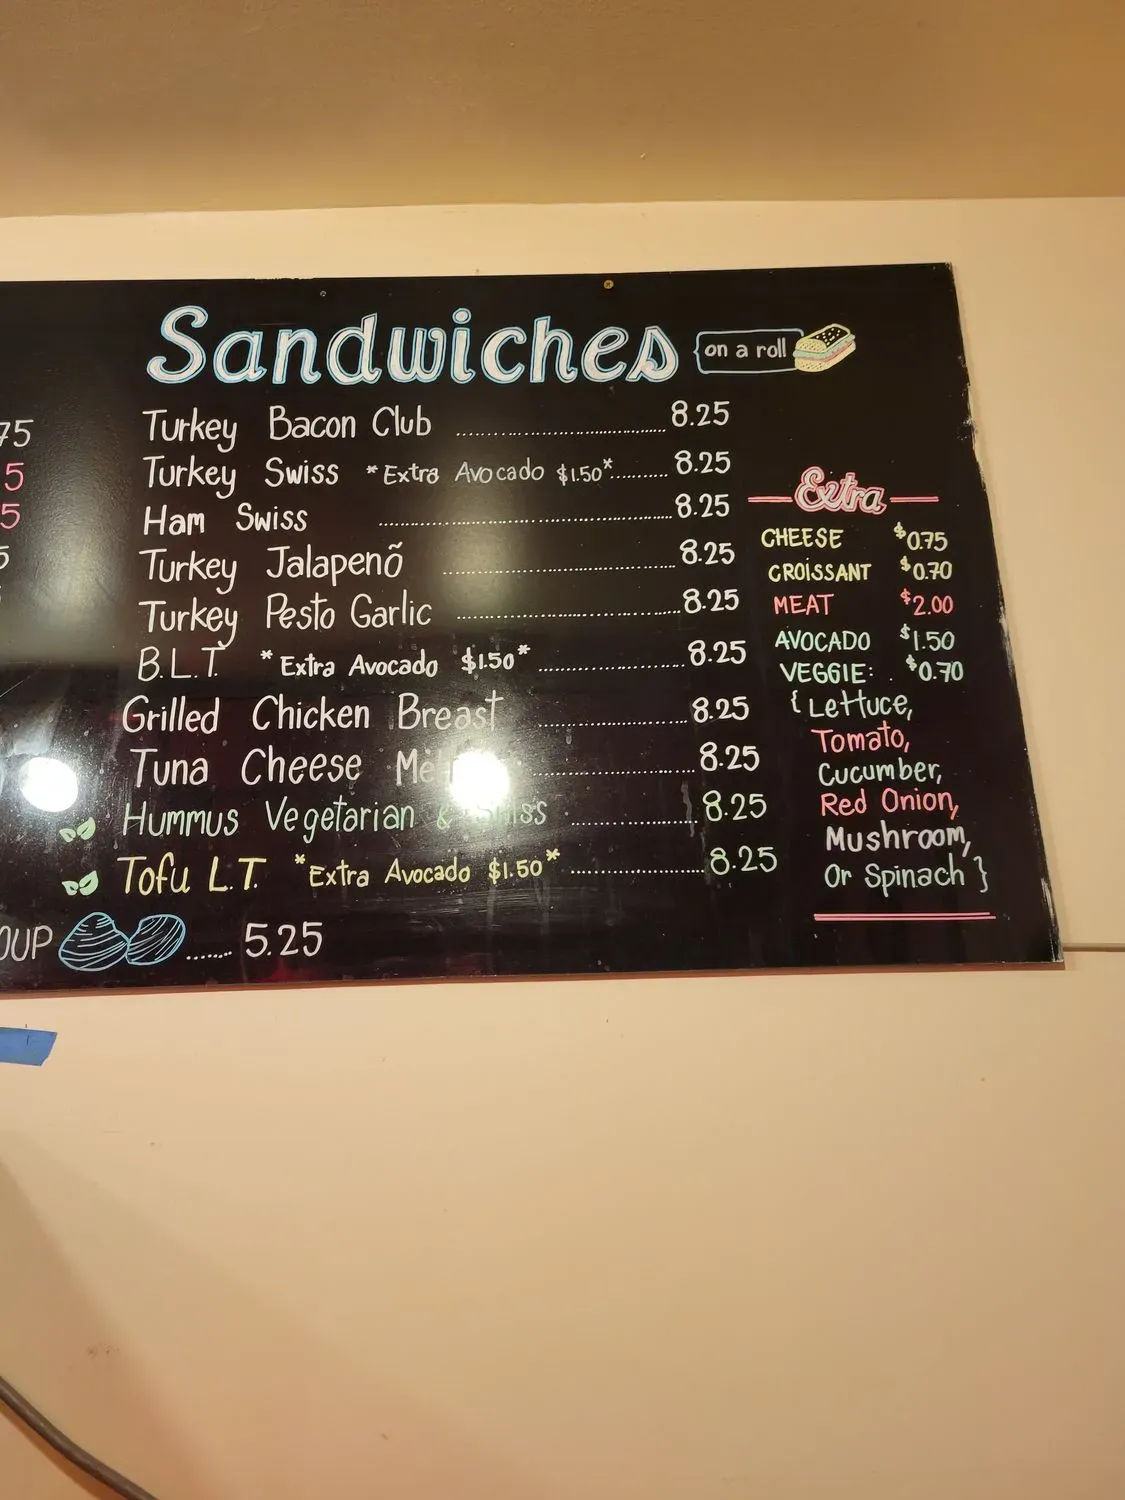 Sandwiches
on a roll
Turkey Bacon Club 8.25
Turkey Swiss *Extra Avocado $1.50* 8.25
Ham Swiss 8.25
Turkey Jalapenõ 8.25
Turkey Pesto Garlic 8.25
B.L.T. *Extra Avocado $1.50* 8.25
Grilled Chicken Breast 8.25
Tuna Cheese 8.25
Hummus Vegetarian & Swiss 8.25
Tofu L.T. *Extra Avocado $1.50* 8.25
5.25
Extra
CHEESE $0.75
CROISSANT $0.70
MEAT $2.00
AVOCADO $1.50
VEGGIE: $0.70
{Lettuce,
Tomato,
Cucumber,
Red Onion,
Mushroom,
Or Spinach}